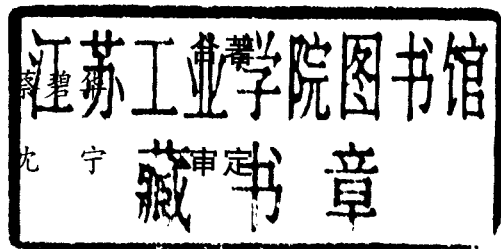 江苏工业学院图书馆
藏书章
蔡碧 合著
沈宁 审定